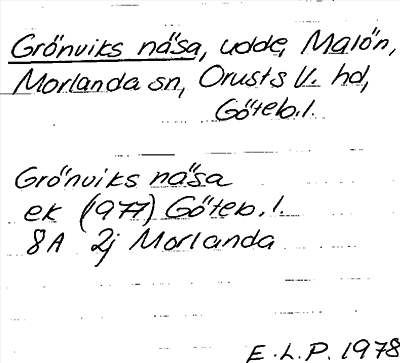 Grönviks näsa, udde, Malön,
Morlanda sn, Orusts V. hd,
Göteb.l.
Grönviks näsa
ek (1977) Göteb.l.
8A 2j Morlanda
E.L.P. 1978